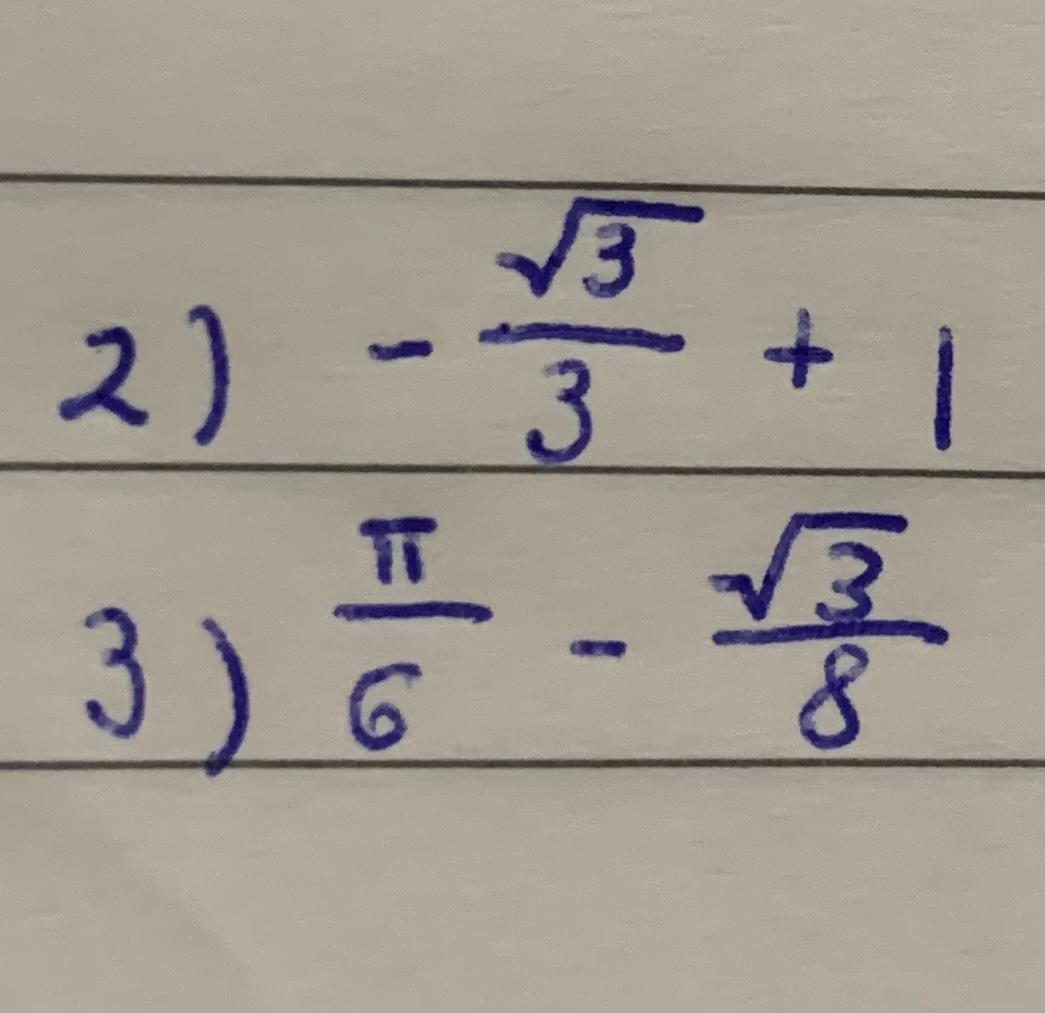 2) -√3/3 + 1
3) π/6 - √3/8